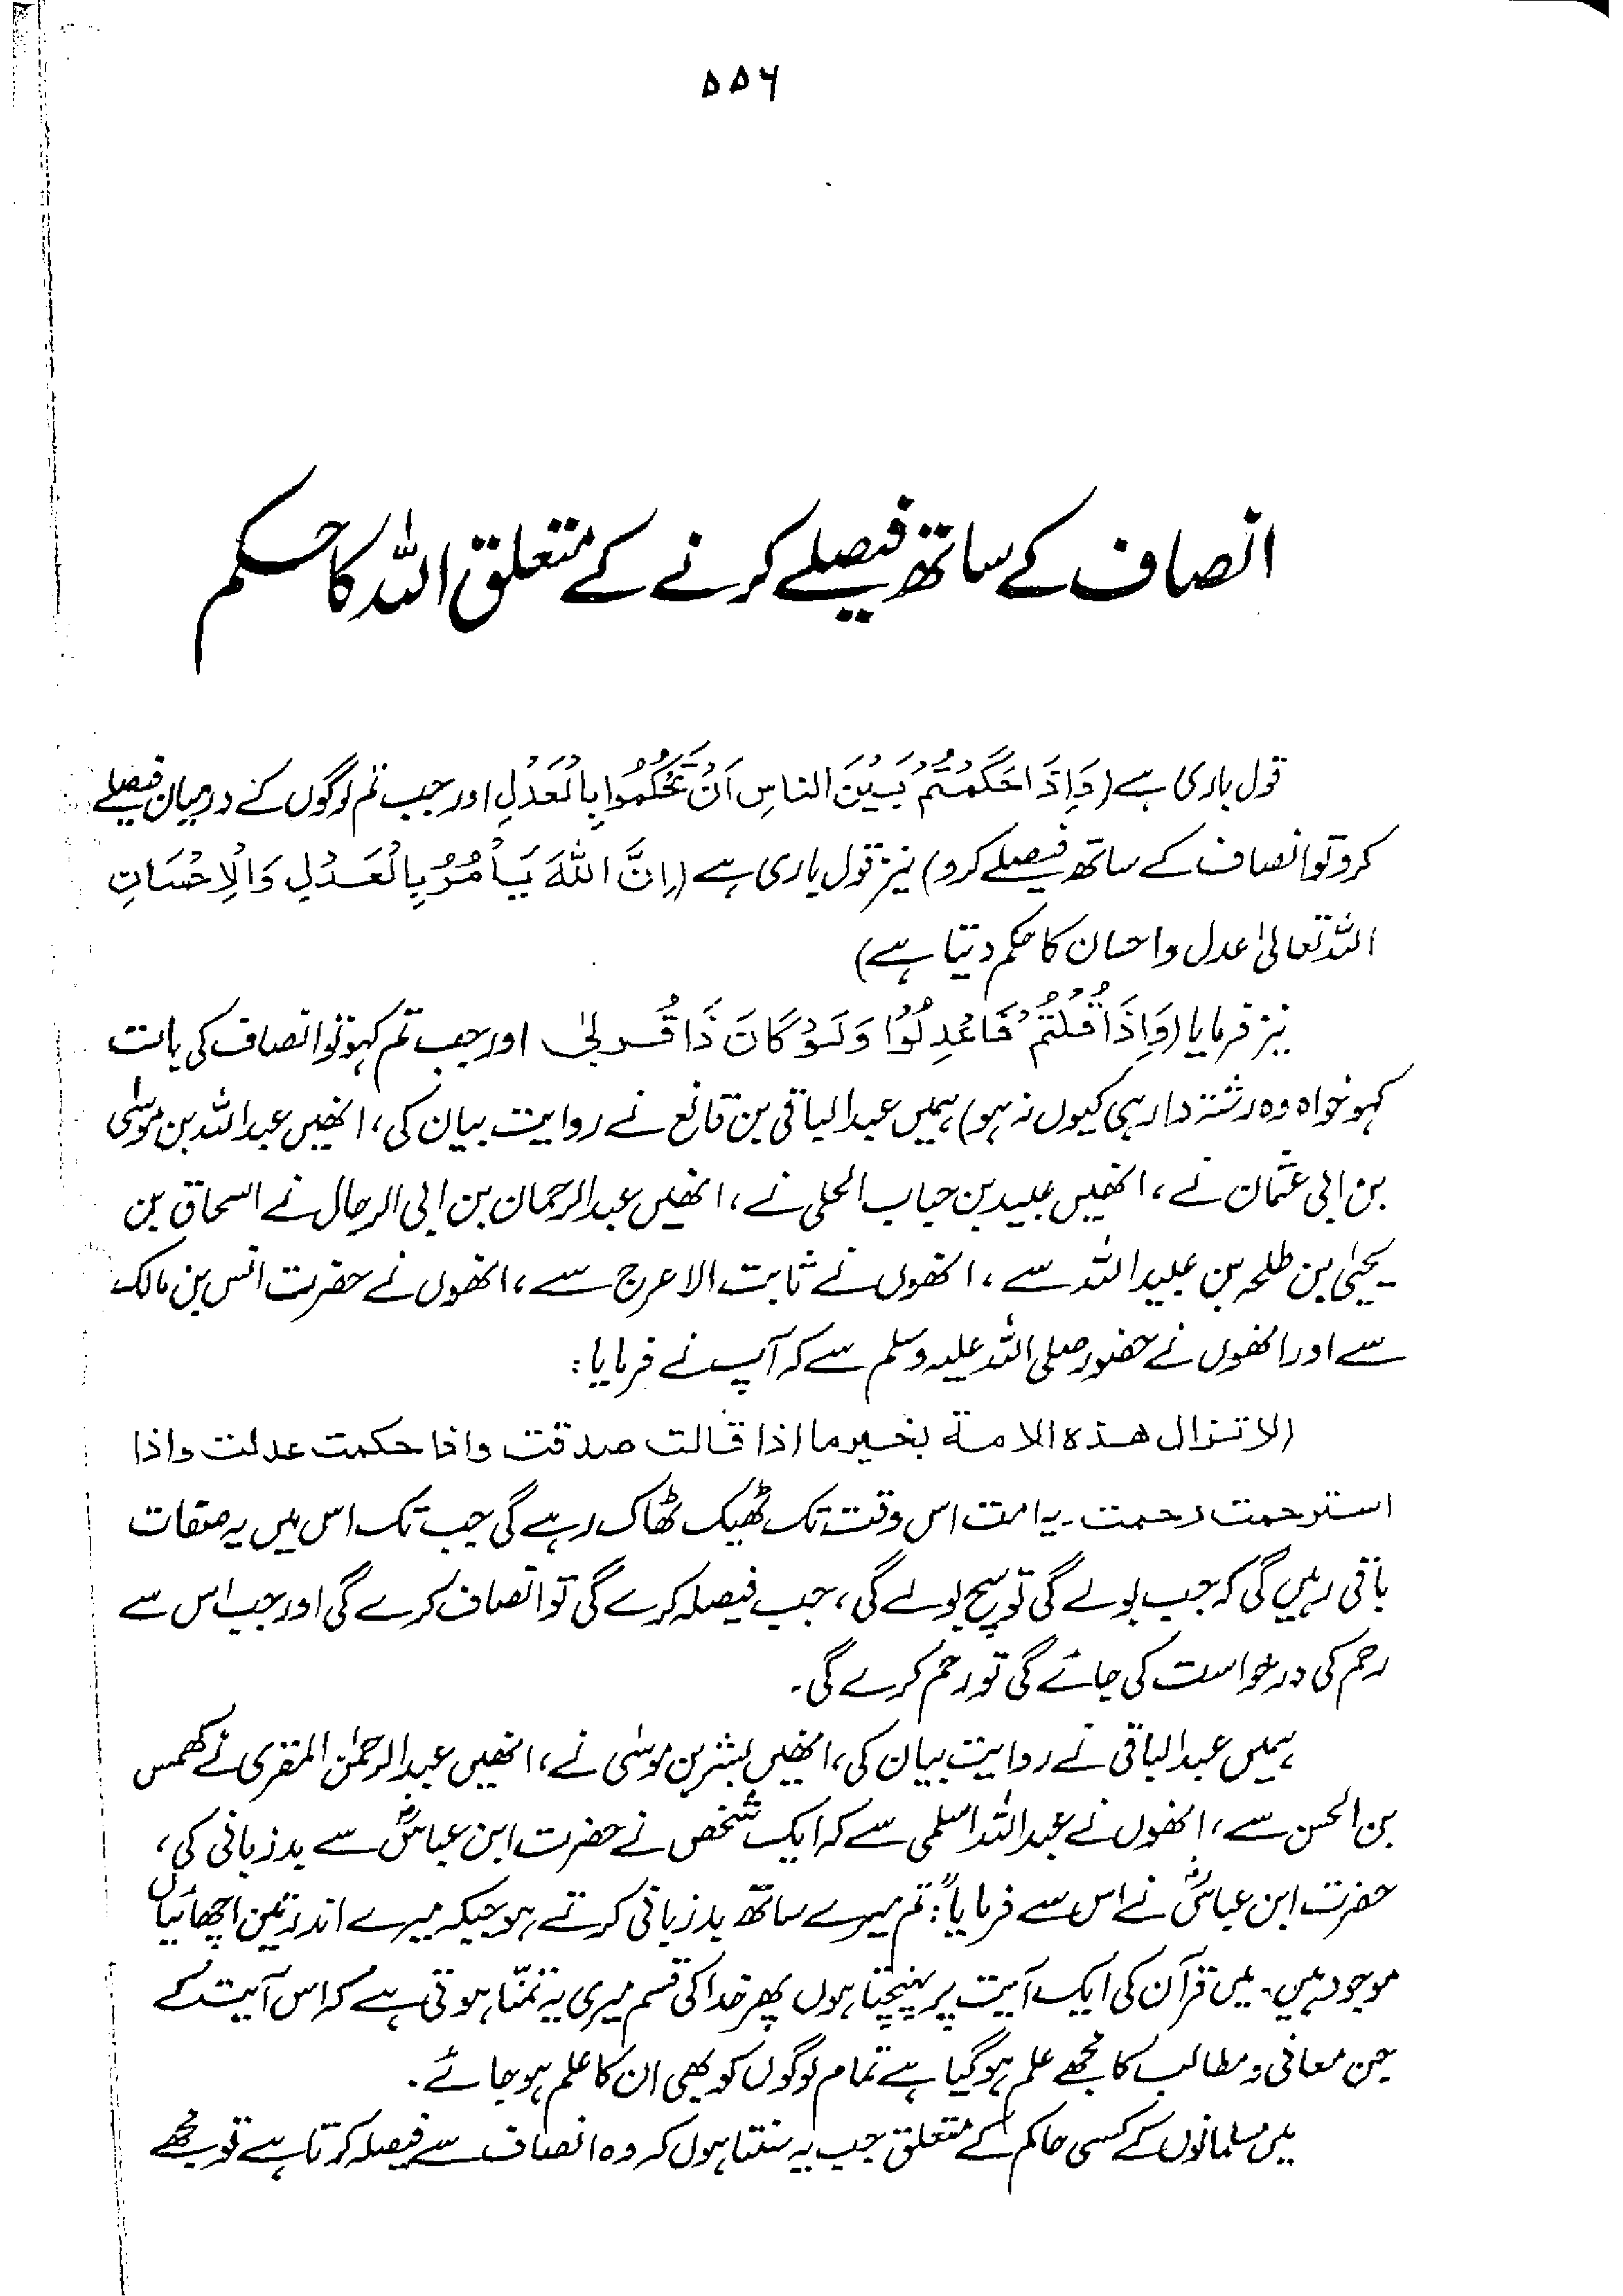 ۵۵۶
انصاف کے ساتھ فیصلے کرنے کے متعلق اللہ کا حکم
قول باری ہے (وَاِذَا حَكَمْتُمْ بَيْنَ الناسِ اَنْ تَحْكُمُوا بِالْعَدْلِ اور جب تم لوگوں کے درمیان فیصلے
کرو تو انصاف کے ساتھ فیصلے کرو) نیز قول باری ہے (اِنَّ اللهَ يَاْمُرُ بِالْعَدْلِ وَالْاِحْسَانِ
اللہ تعالیٰ عدل واحسان کا حکم دیتا ہے)
نیز فرمایا (وَاِذَا قُلْتُمْ فَاعْدِلُوْا وَلَوْ كَانَ ذَا قُرْبٰى اور جب تم کہو تو انصاف کی بات
کہو خواہ وہ رشتہ دار ہی کیوں نہ ہو) ہمیں عبدالباقی بن قانع نے روایت بیان کی، انھیں عبداللہ بن موسٰی
بن ابی عثمان نے، انھیں عبید بن حباب الحلی نے، انھیں عبدالرحمان بن ابی الرجال نے اسحاق بن
یحییٰ بن طلحہ بن عبیداللہ سے، انھوں نے ثابت الاعرج سے، انھوں نے حضرت انس بن مالک
سے اور انھوں نے حضور صلی اللہ علیہ وسلم سے کہ آپ نے فرمایا:
(لا تزال هذه الامة بخير ما اذا قالت صدقت واذا حكمت عدلت واذا
استرحمت رحمت۔ یہ امت اس وقت تک ٹھیک ٹھاک رہے گی جب تک اس میں یہ صفات
باقی رہیں گی کہ جب بولے گی تو سچ بولے گی، جب فیصلہ کرے گی تو انصاف کرے گی اور جب اس سے
رحم کی درخواست کی جائے گی تو رحم کرے گی۔
ہمیں عبدالباقی نے روایت بیان کی، انھیں بشر بن موسٰی نے، انھیں عبدالرحمٰن المقری نے کھمس
بن الحسن سے، انھوں نے عبداللہ اسلمی سے کہ ایک شخص نے حضرت ابن عباسؓ سے بدزبانی کی،
حضرت ابن عباسؓ نے اس سے فرمایا: "تم میرے ساتھ بدزبانی کرتے ہو جبکہ میرے اندر تین اچھائیاں
موجود ہیں۔ میں قرآن کی ایک آیت پر پہنچتا ہوں پھر خدا کی قسم میری یہ تمنّا ہوتی ہے کہ اس آیت کے
جن معانی و مطالب کا مجھے علم ہوگیا ہے تمام لوگوں کو بھی ان کا علم ہو جائے۔
میں مسلمانوں کے کسی حاکم کے متعلق جب یہ سنتا ہوں کہ وہ انصاف سے فیصلہ کرتا ہے تو مجھے